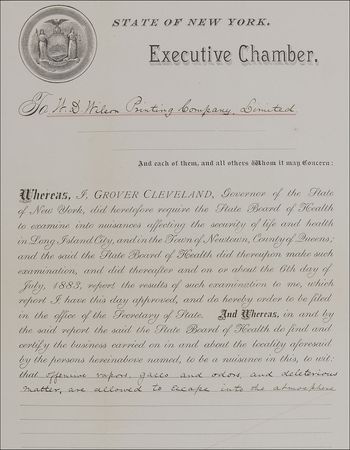 STATE OF NEW YORK.
Executive Chamber,
To W. D. Wilson Printing Company, Limited,
And each of them, and all others Whom it may Concern:
Whereas, I, GROVER CLEVELAND, Governor of the State
of New York, did heretofore require the State Board of Health
to examine into nuisances affecting the security of life and health
in Long Island City, and in the Town of Newtown, County of Queens;
and the said the State Board of Health did thereupon make such
examination, and did thereafter and on or about the 6th day of
July, 1883, report the results of such examination to me, which
report I have this day approved, and do hereby order to be filed
in the office of the Secretary of State. And Whereas, in and by
the said report the said the State Board of Health do find and
certify the business carried on in and about the locality aforesaid
by the persons hereinabove named, to be a nuisance in this, to wit:
that offensive vapors, gases and odors, and deleterious
matter, are allowed to escape into the atmosphere